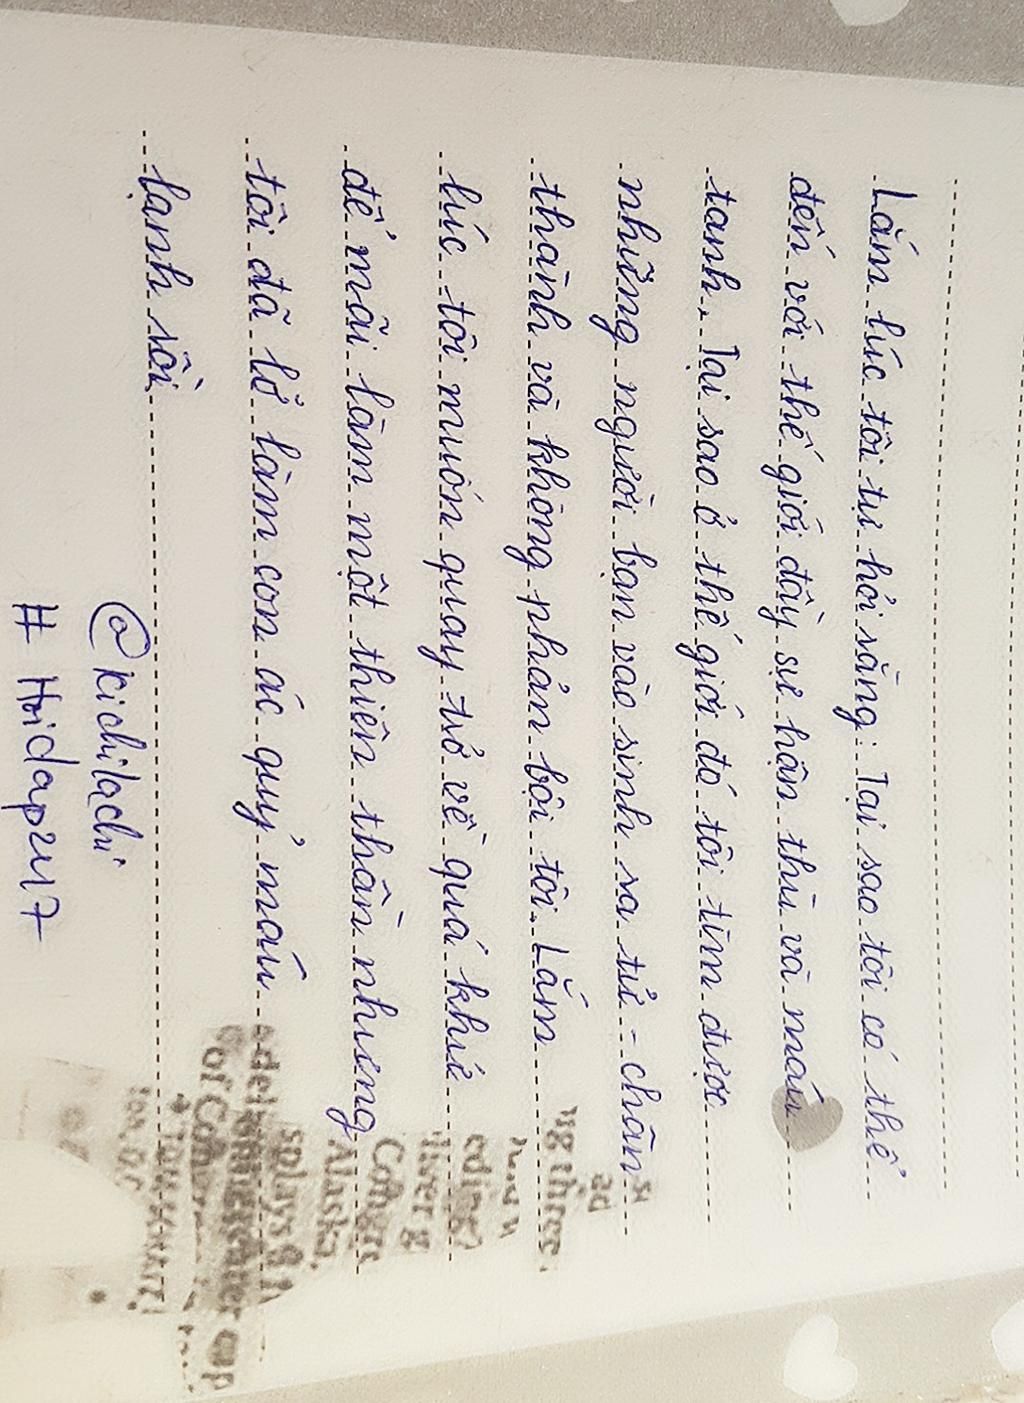 Lắm lúc tôi tự hỏi rằng: Tại sao tôi có thể
đến với thế giới đầy sự hận thù và máu
tanh. Tại sao ở thế giới đó tôi tìm được
những người bạn vào sinh ra tử - chân
thành và không phản bội tôi. Lắm
lúc tôi muốn quay trở về quá khứ
để mãi làm một thiên thần nhưng
tôi đã lỡ làm con ác quỷ máu
lạnh rồi.
@kichilachi
# Hoidap247
ug three
Alaska,
splays